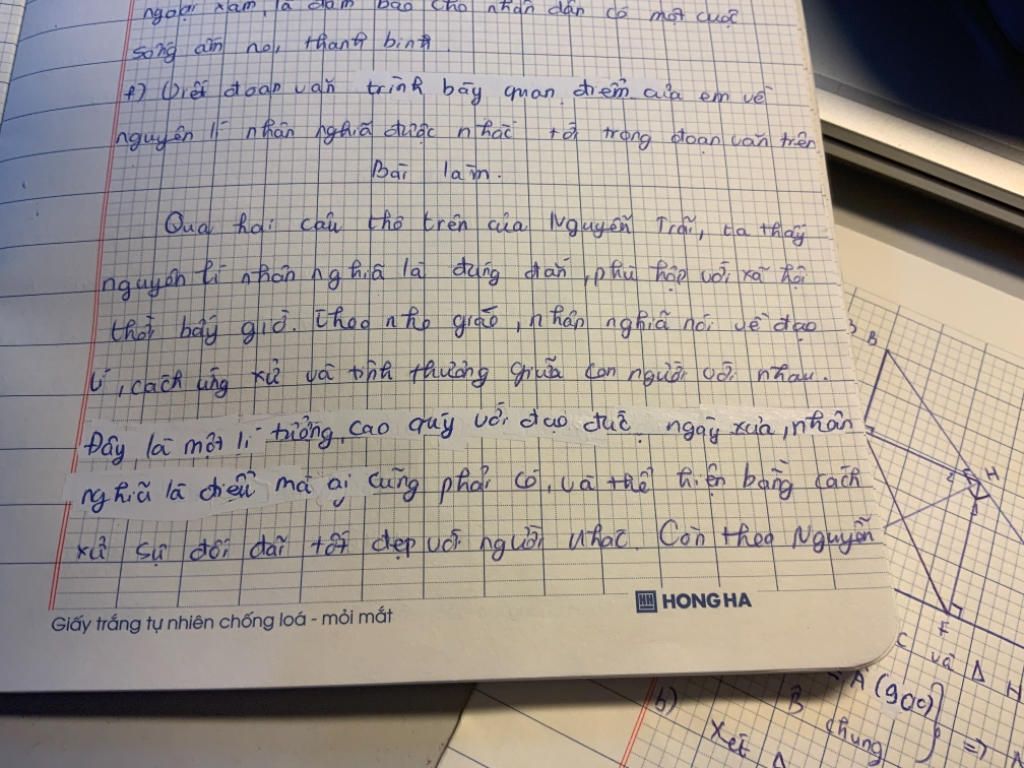 ngoại xâm, là đảm bảo cho nhân dân có một cuộc
sống ấm no, thanh bình.
f) Viết đoạn văn trình bày quan điểm của em về
nguyên lí nhân nghĩa được nhắc tới trong đoạn văn trên
Bài làm.
Qua hai câu thơ trên của Nguyễn Trãi, ta thấy
nguyên lí nhân nghĩa là đúng đắn, phù hợp với xã hội
thời bấy giờ. Theo nho giáo, nhân nghĩa nói về đạo
lí, cách ứng xử và tình thương giữa con người với nhau.
Đây là một lí tưởng cao quý với đạo đức. ngày xưa, nhân
nghĩa là điều mà ai cũng phải có, và thể hiện bằng cách
xử sự đối đãi tốt đẹp với người khác. Còn theo Nguyễn
Giấy trắng tự nhiên chống loá - mỏi mắt
HH HONG HA
B
H
F
C và Δ H
B Â (90°)
b)
chung
Xét Δ